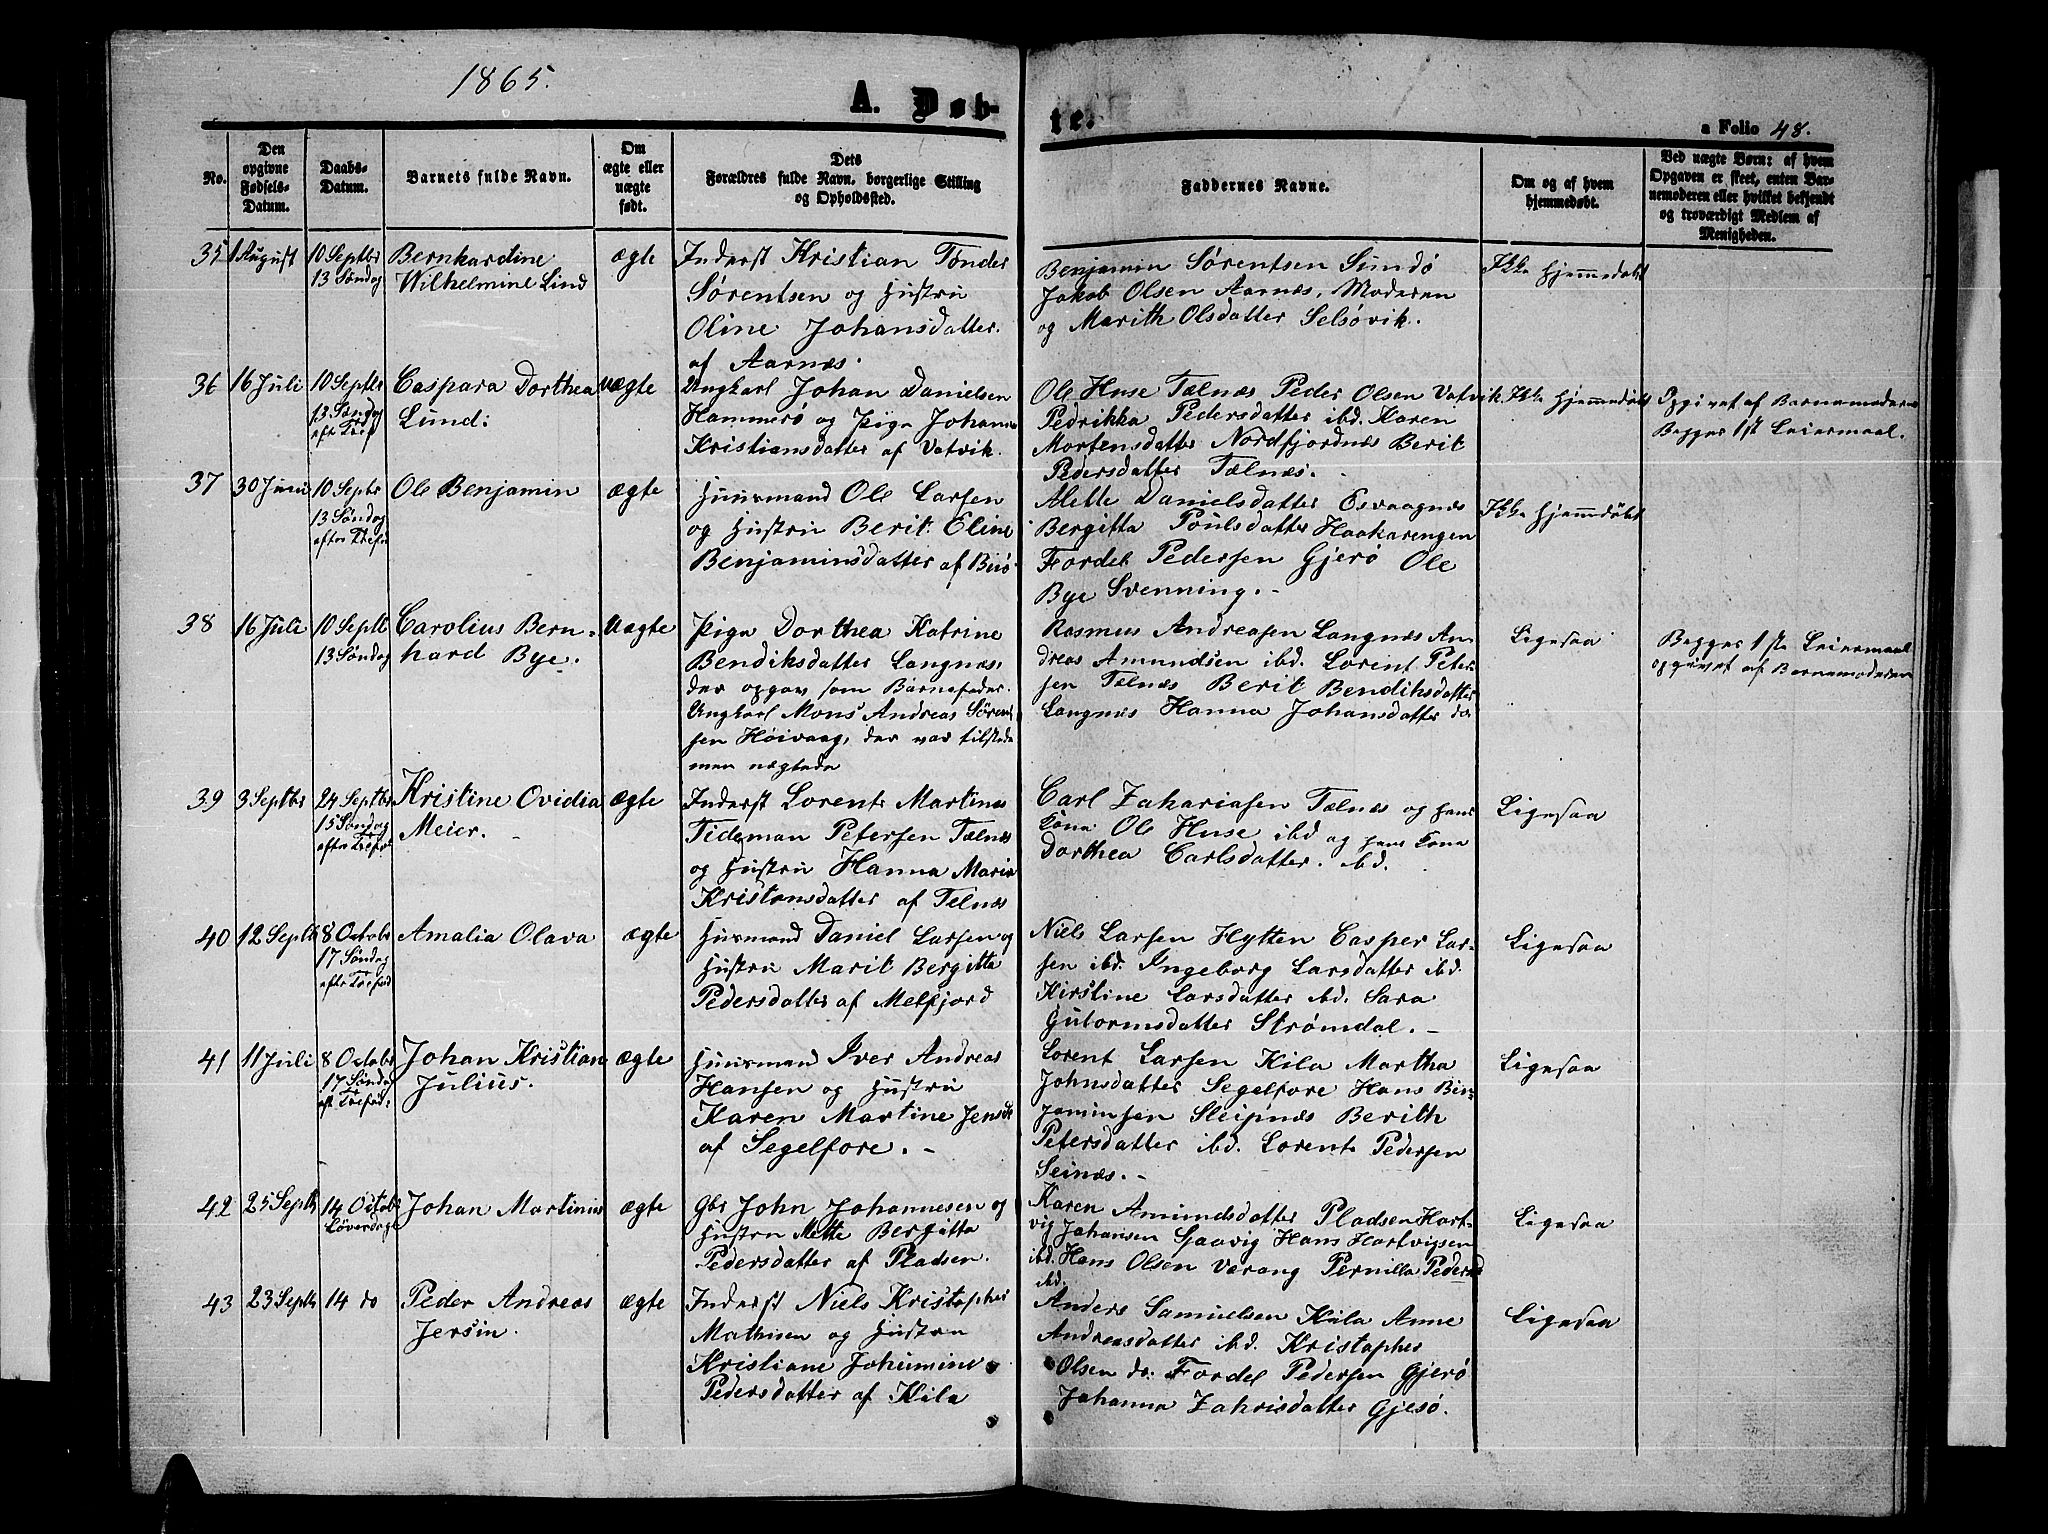 1865.
A. Døb-
te.
a Folio 48.
No.
Den
opgivne
Fødsels-
Datum.
Daabs-
Datum.
Barnets fulde Navn.
Om
ægte eller
uægte
født.
Dets
Forældres fulde Navn, borgerlige Stilling
og Opholdssted.
Faddernes Navne.
Om og af hvem
hjemmedøbt.
Ved uægte Børn: af hvem
Opgaven er skeet, enten Bar-
nemoderen eller hvilket bekjendt
og troværdigt Medlem af
Menigheden.
35
1 August
10 Septbr
13 Søndag
Bernhardine
Wilhelmine Lind
ægte
Inderst Kristian Tønder
Sørentsen og Hustru
Oline Johansdatter
af Aarnæs.
Benjamin Sørentsen Sundø
Jakob Olsen Aarnæs, Moderen
og Marith Olsdatter Selsøvik.
Ikke Hjemmedøbt
36
16 Juli
10 Septbr
13 Søndag
eft Tref
Caspara Dorthea
Lund.
uægte
Ungkarl Johan Danielsen
Hammerø og Pige Johanna
Kristiansdatter af Vatvik.
Ole Huse Tælnæs Peder Olsen Vatvik
Pedrikka Pedersdatter ibd. Karen
Mortensdatter Nordfjordnæs Berit
Pedersdatter Tælnæs.
Ikke Hjemmedøbt
Opgivet af Barnemoderen
Begges 1ste Leiermaal.
37
30 Juni
10 Septbr
13 Søndag
efter Trefol
Ole Benjamin
ægte
Huusmand Ole Larsen
og Hustru Berit Eline
Benjaminsdatter af
Alette Danielsdatter Esvaagnæs
Bergitta Poulsdatter Haakarengen
Fordel Pedersen Gjerø Ole
Bye Svenning.
Ikke Hjemmdøbt
38
16 Juli
10 Septb
13 Søndag
Carolius Bern-
hard Bye.
Uægte
Pige Dorthea Katrine
Bendiksdatter Langnæs,
der opgav som Barnefader
Ungkarl Mons Andreas Sørent
sen Høivaag, der var tilstede
men nægtede
Rasmus Andreasen Langnæs An-
dreas Amundsen ibd. Lorent Peter-
sen Tælnæs Berit Bendiksdatter
Langnæs Hanna Johansdatter do
Ligesaa
Begges 1ste Leiermaal
opgivet af Barnemoderen
39
3 Septbr
24 Septbr
15 Søndag
efter Trefol
Kristine Ovidia
Meier.
ægte
Inderst Lorents Martinus
Tideman Petersen Tælnæs
og Hustru Hanna Maria
Kristensdatter af Telnæs
Carl Zakariasen Tælnæs og hans
Kone Ole Huse ibd og hans Kone
Dorthea Carlsdatter. ibd.
Ligesaa
40
12 Septb
8 Octobr
17 Søndag
efter Trefold
Amalia Olava
ægte
Huusmand Daniel Larsen og
Hustru Marit Bergitta
Pedersdatter af Melfjord
Niels Larsen Hytten Casper Lar-
sen ibd. Ingeborg Larsdatter ibd.
Kirstine Larsdatter ibd. Sara
Gutormsdatter Strømdal.
Ligesaa
41
11 Juli
8 Octobr
17 Søndag
eft Trefold
Johan Kristian
Julius.
ægte
Huusmand Iver Andreas
Hansen og Hustru
Karen Martine Jensd
af Segelfore.
Lorent Larsen Kila Martha
Johnsdatter Segelfore Hans Ben-
jaminsen Sleipnæs Berith
Petersdatter ibd. Lorents Pedersen
Seinæs.
Ligesaa
42
25 Septb
14 Octob
Løverdag
Johan Martinius
ægte
Gbr John Johannesen og
Hustru Mette Bergitta
Pedersdatter af Pladsen.
Karen Amundsdatter Pladsen Hart-
vig Johansen Gaavig Hans Hartvigsen
ibd. Hans Olsen Værang Pernilla Pedersd
ibd.
Ligesaa
43
23 Septb
14 do
Peder Andreas
Jersin.
ægte
Inderst Niels Kristopher
Mathisen og Hustru
Kristiane Johumine
Pedersdatter af Kila
Anders Samuelsen Kila Anne
Andreasdatter ibd. Kristopher
Olsen do. Fordel Pedersen Gjerø
Johanna Zakrisdatter Gjesø.
Ligesaa